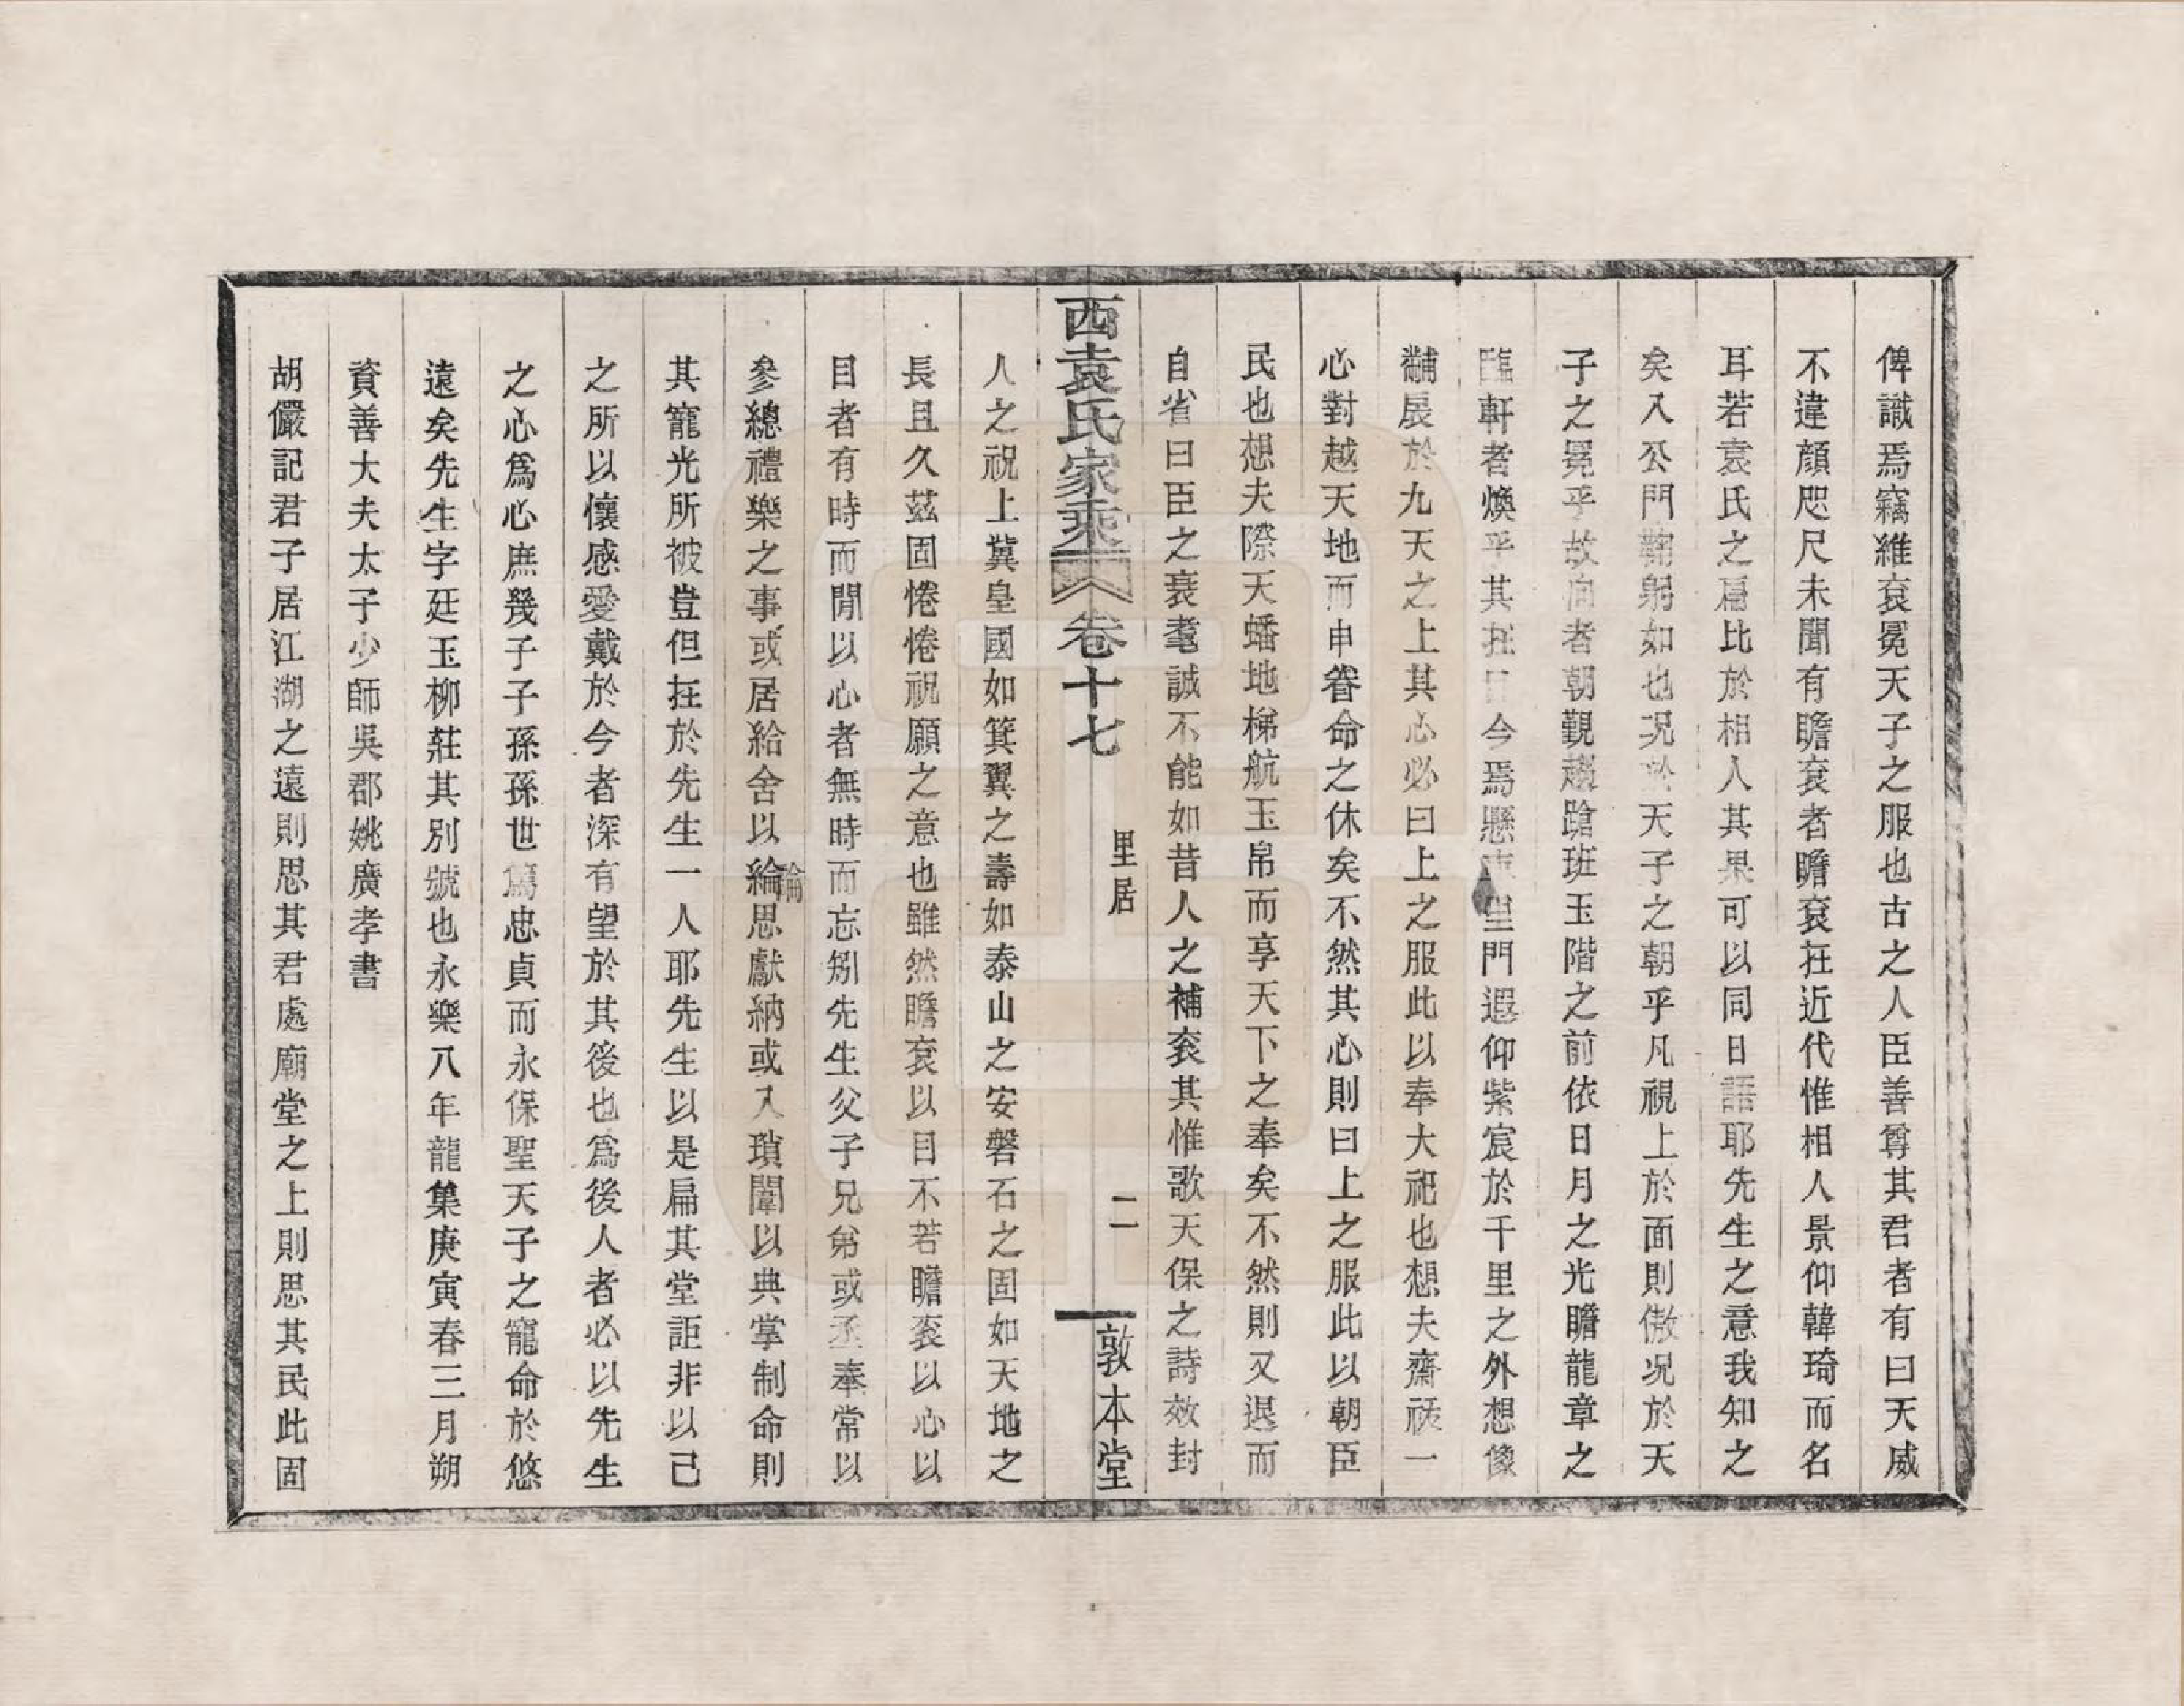 俾識焉竊維袞冕天子之服也古之人臣善尊其君者有曰天威
不違顔咫尺未聞有瞻袞者瞻袞在近代惟相人景仰韓琦而名
耳若袁氏之扁比於相人其果可以同日語耶先生之意我知之
矣入公門鞠躬如也况於天子之朝乎凡視上於面則傲况於天
子之冕乎故向者朝覲趨蹌班玉階之前依日月之光瞻龍章之
臨軒者煥乎其在目今焉懸車里門遐仰紫宸於千里之外想像
黼扆於九天之上其心必曰上之服此以奉大祀也想夫齋祓一
心對越天地而申眷命之休矣不然其心則曰上之服此以朝臣
民也想夫際天蟠地梯航玉帛而享天下之奉矣不然則又退而
自省曰臣之衰耄誠不能如昔人之補袞其惟歌天保之詩效封
西袁氏家乘 卷十七 里居 二 敦本堂
人之祝上冀皇國如箕翼之壽如泰山之安磐石之固如天地之
長且久茲固惓惓祝願之意也雖然瞻袞以目不若瞻袞以心以
目者有時而間以心者無時而忘矧先生父子兄弟或丞奉常以
參總禮樂之事或居給舍以綸論思獻納或入瑣闈以典掌制命則
其寵光所被豈但在於先生一人耶先生以是扁其堂詎非以己
之所以懷感愛戴於今者深有望於其後也為後人者必以先生
之心為心庶幾子子孫孫世篤忠貞而永保聖天子之寵命於悠
遠矣先生字廷玉柳莊其別號也永樂八年龍集庚寅春三月朔
資善大夫太子少師吳郡姚廣孝書
胡儼記君子居江湖之遠則思其君處廟堂之上則思其民此固